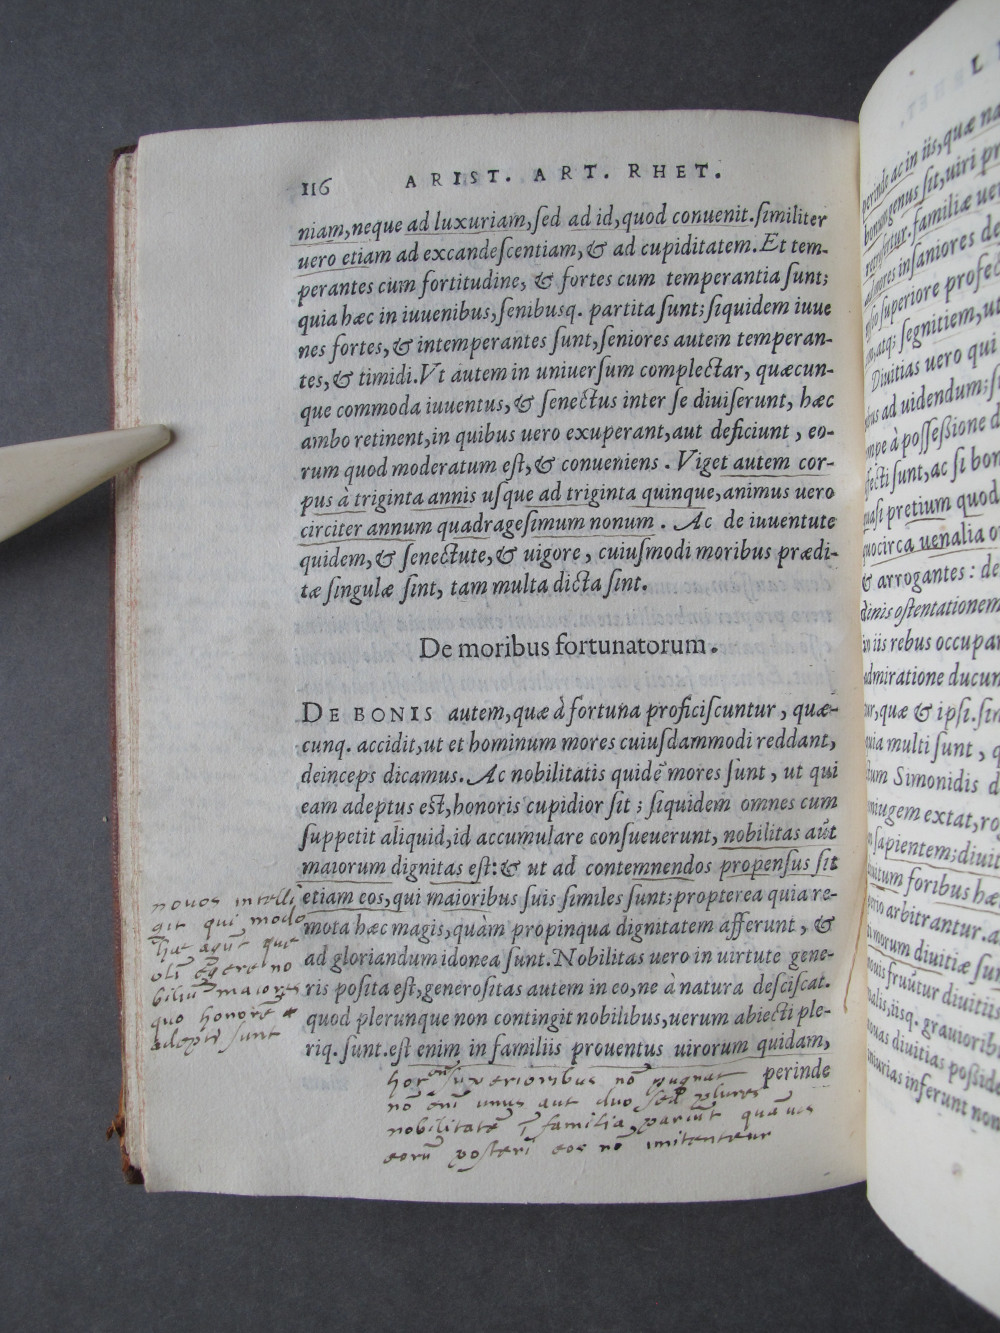 116 ARIST. ART. RHET.
niam, neque ad luxuriam, sed ad id, quod conuenit. similiter
uero etiam ad excandescentiam, & ad cupiditatem. Et tem-
perantes cum fortitudine, & fortes cum temperantia sunt;
quia hæc in iuuenibus, senibusq. partita sunt; siquidem iuue
nes fortes, & intemperantes sunt, seniores autem temperan-
tes, & timidi. Vt autem in uniuersum complectar, quæcun-
que commoda iuuentus, & senectus inter se diuiserunt, hæc
ambo retinent, in quibus uero exuperant, aut deficiunt, eo-
rum quod moderatum est, & conueniens. Viget autem cor-
pus à triginta annis usque ad triginta quinque, animus uero
circiter annum quadragesimum nonum. Ac de iuuentute
quidem, & senectute, & uigore, cuiusmodi moribus prædi-
tæ singulæ sint, tam multa dicta sint.
De moribus fortunatorum.
DE BONIS autem, quæ à fortuna proficiscuntur, quæ-
cunq. accidit, ut et hominum mores cuiusdammodi reddant,
deinceps dicamus. Ac nobilitatis quidē mores sunt, ut qui
eam adeptus est, honoris cupidior sit; siquidem omnes cum
suppetit aliquid, id accumulare consueuerunt, nobilitas aūt
maiorum dignitas est: & ut ad contemnendos propensus sit
etiam eos, qui maioribus suis similes sunt; propterea quia re-
mota hæc magis, quàm propinqua dignitatem afferunt, &
ad gloriandum idonea sunt. Nobilitas uero in uirtute gene-
ris posita est, generositas autem in eo, ne à natura desciscat.
quod plerunque non contingit nobilibus, uerum abiecti ple-
riq. sunt. est enim in familiis prouentus uirorum quidam,
perinde
nouos intelli
git qui modo
hæc agūt que
olī egere no
biliū maiores
quo honorē
adepti sunt
superioribus nō pugnat
nō enī unus aut duo sed plures
nobilitatē ī familia pariūt quā uos
eorū posteri eos nō imitentur
perinde ac in iis, quæ na
bonum genus sit, uiri pr
familiæ ue
mores insaniores de
superiore profec
atq; segnitiem, u
Diuitias uero qui
ad uidendum; s
à possessione d
sunt, ac si bon
quasi pretium quod
quocirca uenalia o
& arrogantes: de
ostentationem
in iis rebus occupa
admiratione ducun
quæ & ipsi. sin
quia multi sunt, q
Simonidis d
extat, ro
sapientem; diuit
foribus hæ
arbitrantur. a
diuitiæ su
fruūtur diuitiis
iisq. grauiorib
nouas diuitias posside
iniurias inferunt non